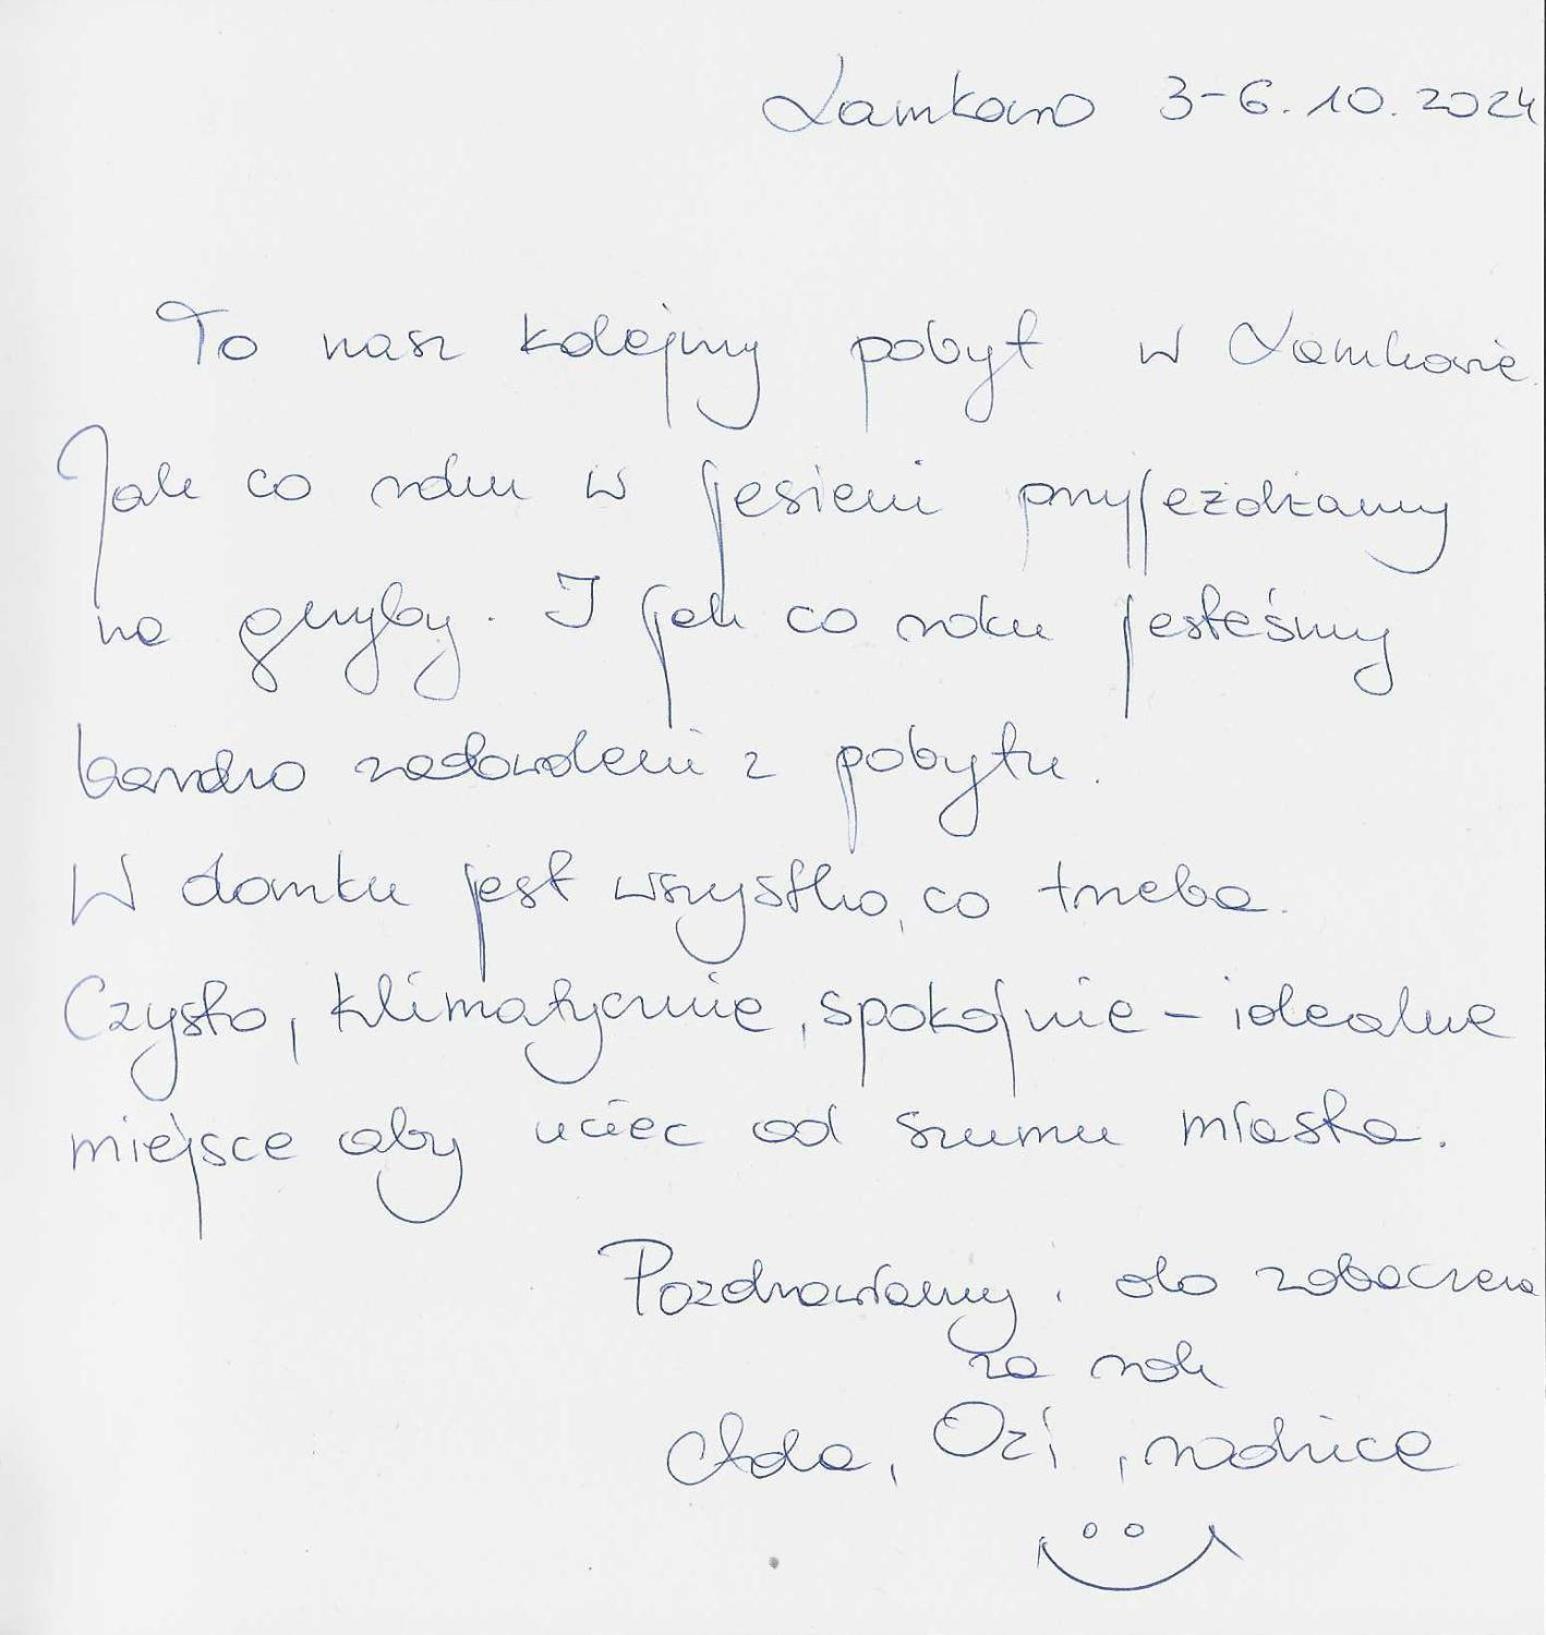 Lamkowo 3-6.10.2024
To nasz kolejny pobyt w Lamkowie.
Jak co roku w jesieni przyjeżdżamy
na grzyby. I jak co roku jesteśmy
bardzo zadowoleni z pobytu.
W domku jest wszystko, co trzeba.
Czysto, klimatycznie, spokojnie - idealne
miejsce aby uciec od szumu miasta.
Pozdrawiamy i do zobaczenia
za rok
Ada, Ozi, rodzice